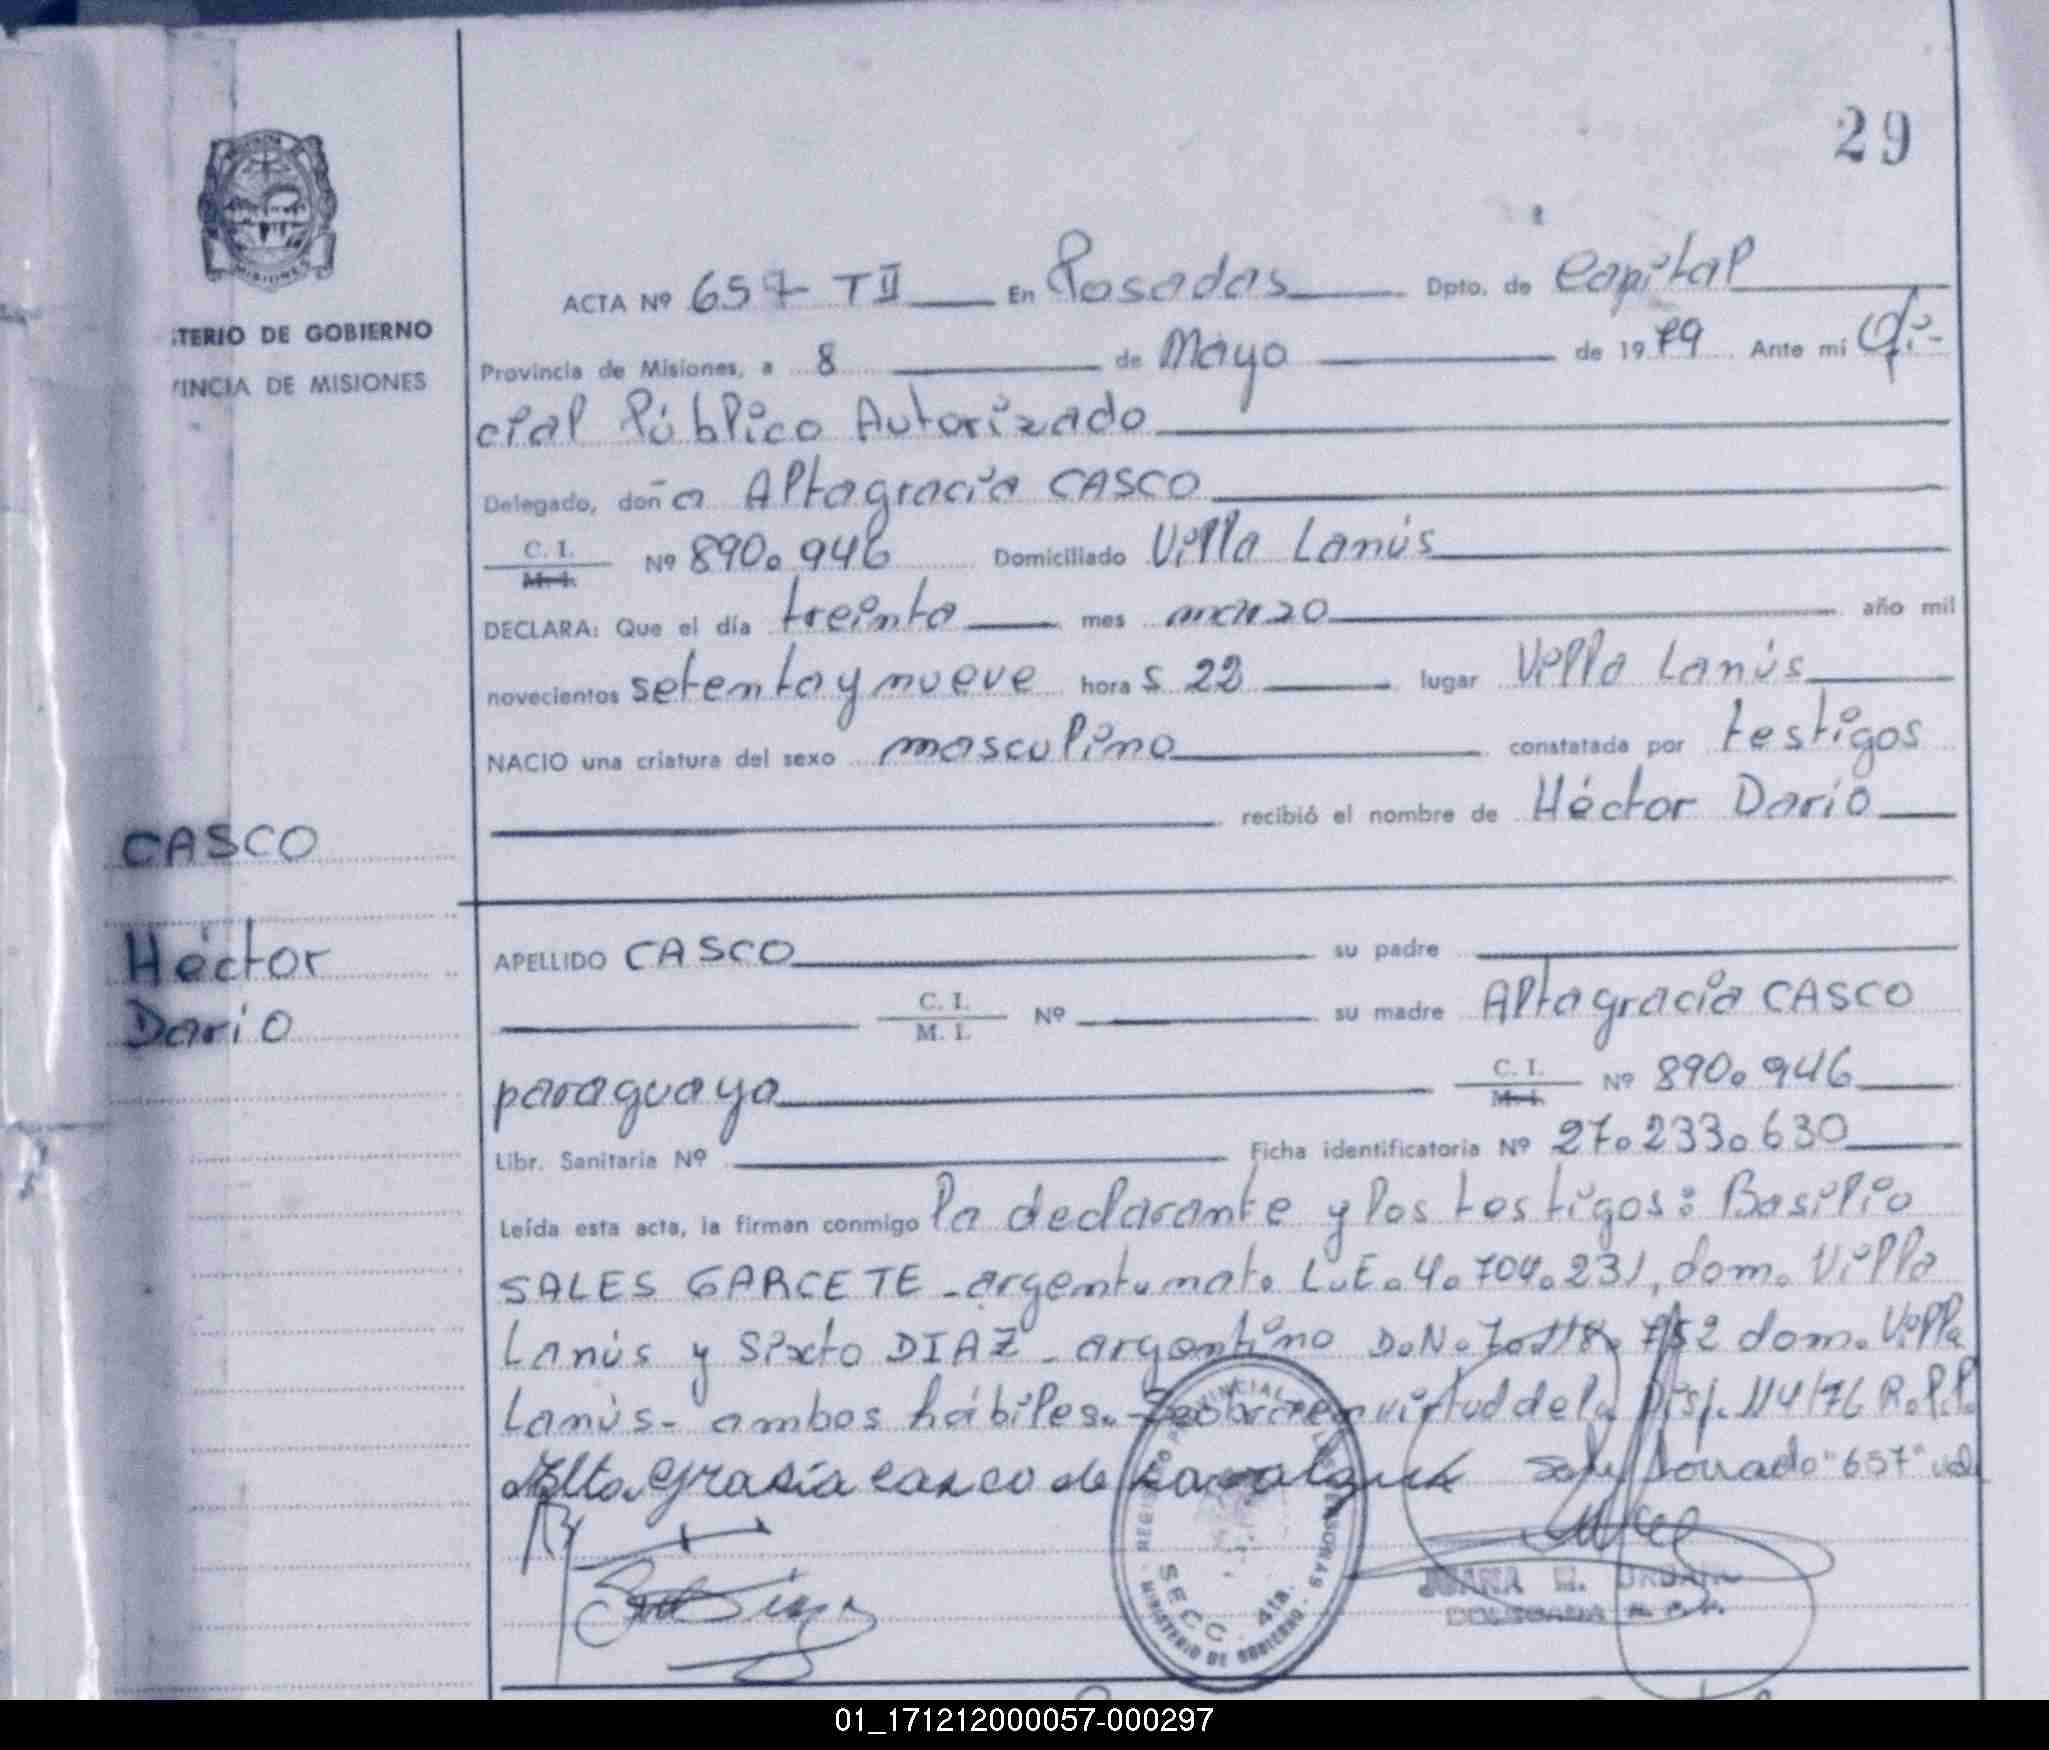 29
ACTA Nº 657 T II En Posadas Dpto. de Capital
STERIO DE GOBIERNO
Provincia de Misiones, a 8 de Mayo de 1979 Ante mi Ofi-
VINCIA DE MISIONES
cial Público Autorizado
Delegado, doña Altagracia CASCO
C. I.
M. I. Nº 890.946 Domiciliado Villa Lanús
DECLARA: Que el día treinta mes marzo año mil
novecientos setenta y nueve hora s 22 lugar Villa Lanús
NACIO una criatura del sexo masculino constatada por testigos
recibió el nombre de Héctor Dario
CASCO
Héctor
Dario
APELLIDO CASCO su padre
C. I.
M. I. Nº su madre Altagracia CASCO
paraguaya C. I.
M. I. Nº 890.946
Libr. Sanitaria Nº Ficha identificatoria Nº 27.233.630
Leída esta acta, la firman conmigo la declarante y los testigos: Basilio
SALES GARCETE - argent. nat. L.E. 4.704.231, dom. Villa
Lanús y Sixto DIAZ - argentino D.N. dom. Villa
Lanús - ambos hábiles. en virtud de la Disp. 114/76 R.P.P.
Alta grasia casco de "657"
REGISTRO PROVINCIAL DE LAS PERSONAS
SECC. 4ta.
MINISTERIO DE GOBIERNO
JUANA
DELEGADA
01_171212000057-000297